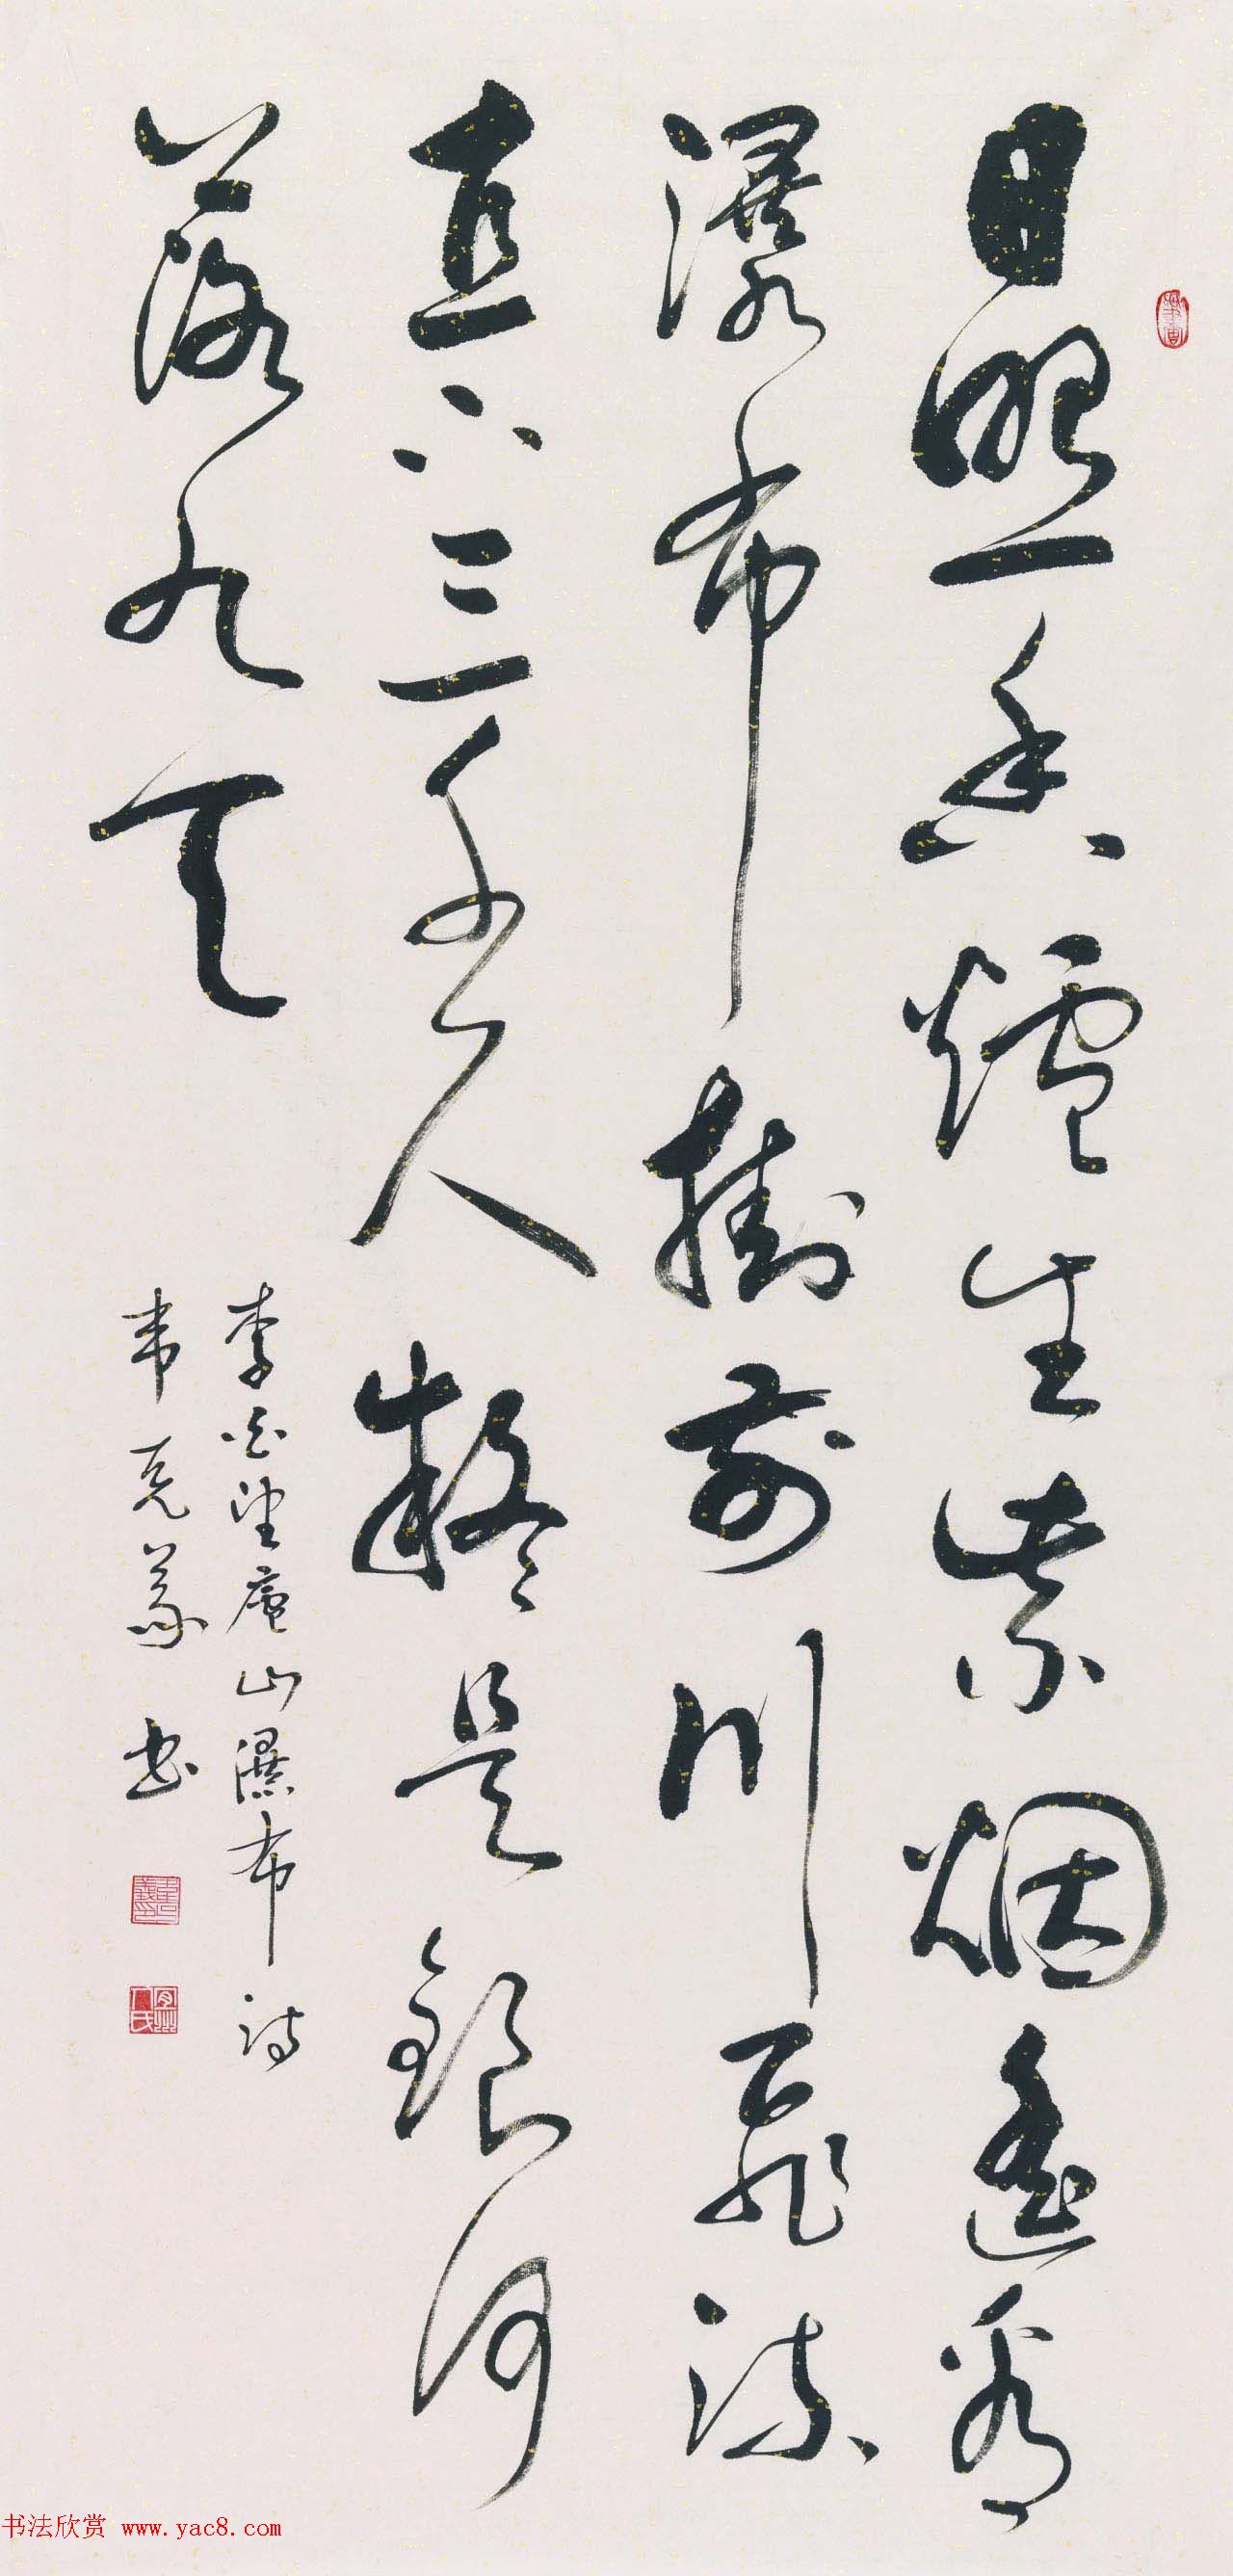 日照香爐生紫烟遥看
瀑布掛前川飛流
直下三千尺疑是銀河
落九天
李白望廬山瀑布詩
韋克義書
书法欣赏 www.yac8.com